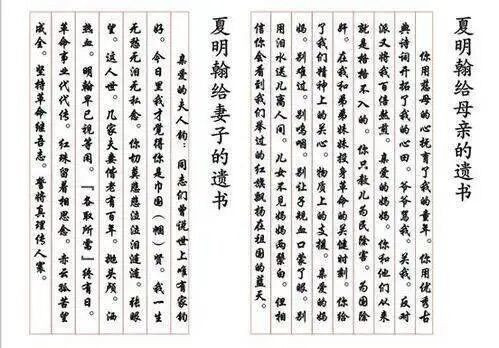 夏明翰给母亲的遗书
你用慈母的心抚育了我的童年。你用优秀古
典诗词开拓了我的心田。爷爷骂我。关我。反对
派又将我百倍煎熬。亲爱的妈妈。你和他们从来
就是格格不入的。你只教儿为民除害。为国除
奸。在我和弟弟妹妹投身革命的关健时刻。你给
了我们精神上的关心。物质上的支援。亲爱的妈
妈。别难过。别呜咽。别让子规血口蒙了眼。别
用泪水送儿离人间。儿女不见妈妈两鬓白。但相
信你会看到我们举过的红旗飘扬在祖国的蓝天。
夏明翰给妻子的遗书
亲爱的夫人钧：同志们曾说世上唯有家钧
好。今日里我才觉得你是巾国（帼）贤。我一生
无愁无泪无私念。你切莫悲悲泣泣泪涟涟。张眼
望。这人世。几家夫妻偕老有百年。抛头颅。洒
热血。明翰早已视等闲。“各取所需”终有日。
革命事业代代传。红珠留着相思念。赤云孤苦望
成全。坚持革命继吾志。誓将真理传人寰。